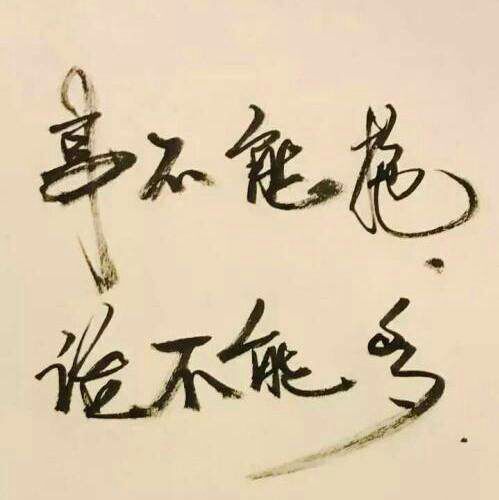 事不能拖.
话不能多.